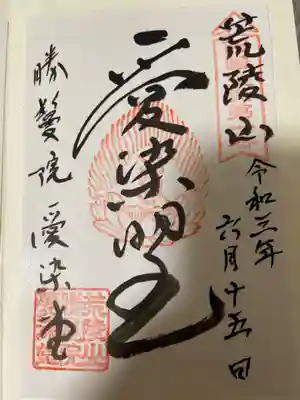 荒陵山
令和三年
六月十五日
愛染明王
勝鬘院愛染堂